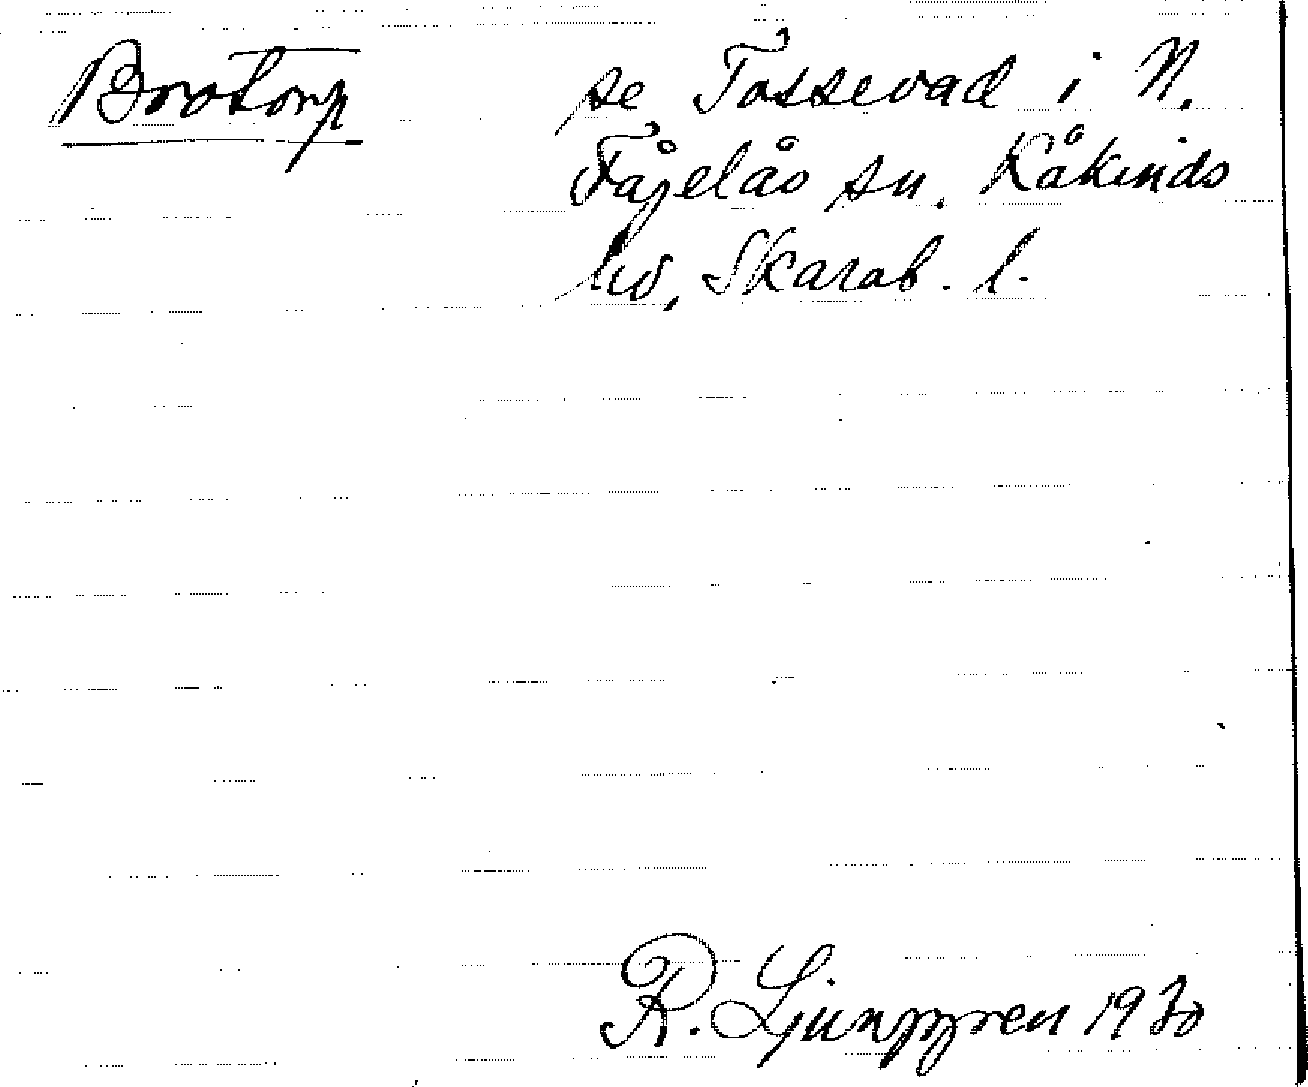 Brotorp se Tossevad i N.
Fågelås sn. Kåkinds
hd, Skarab. l.
R. Ljunggren 1930